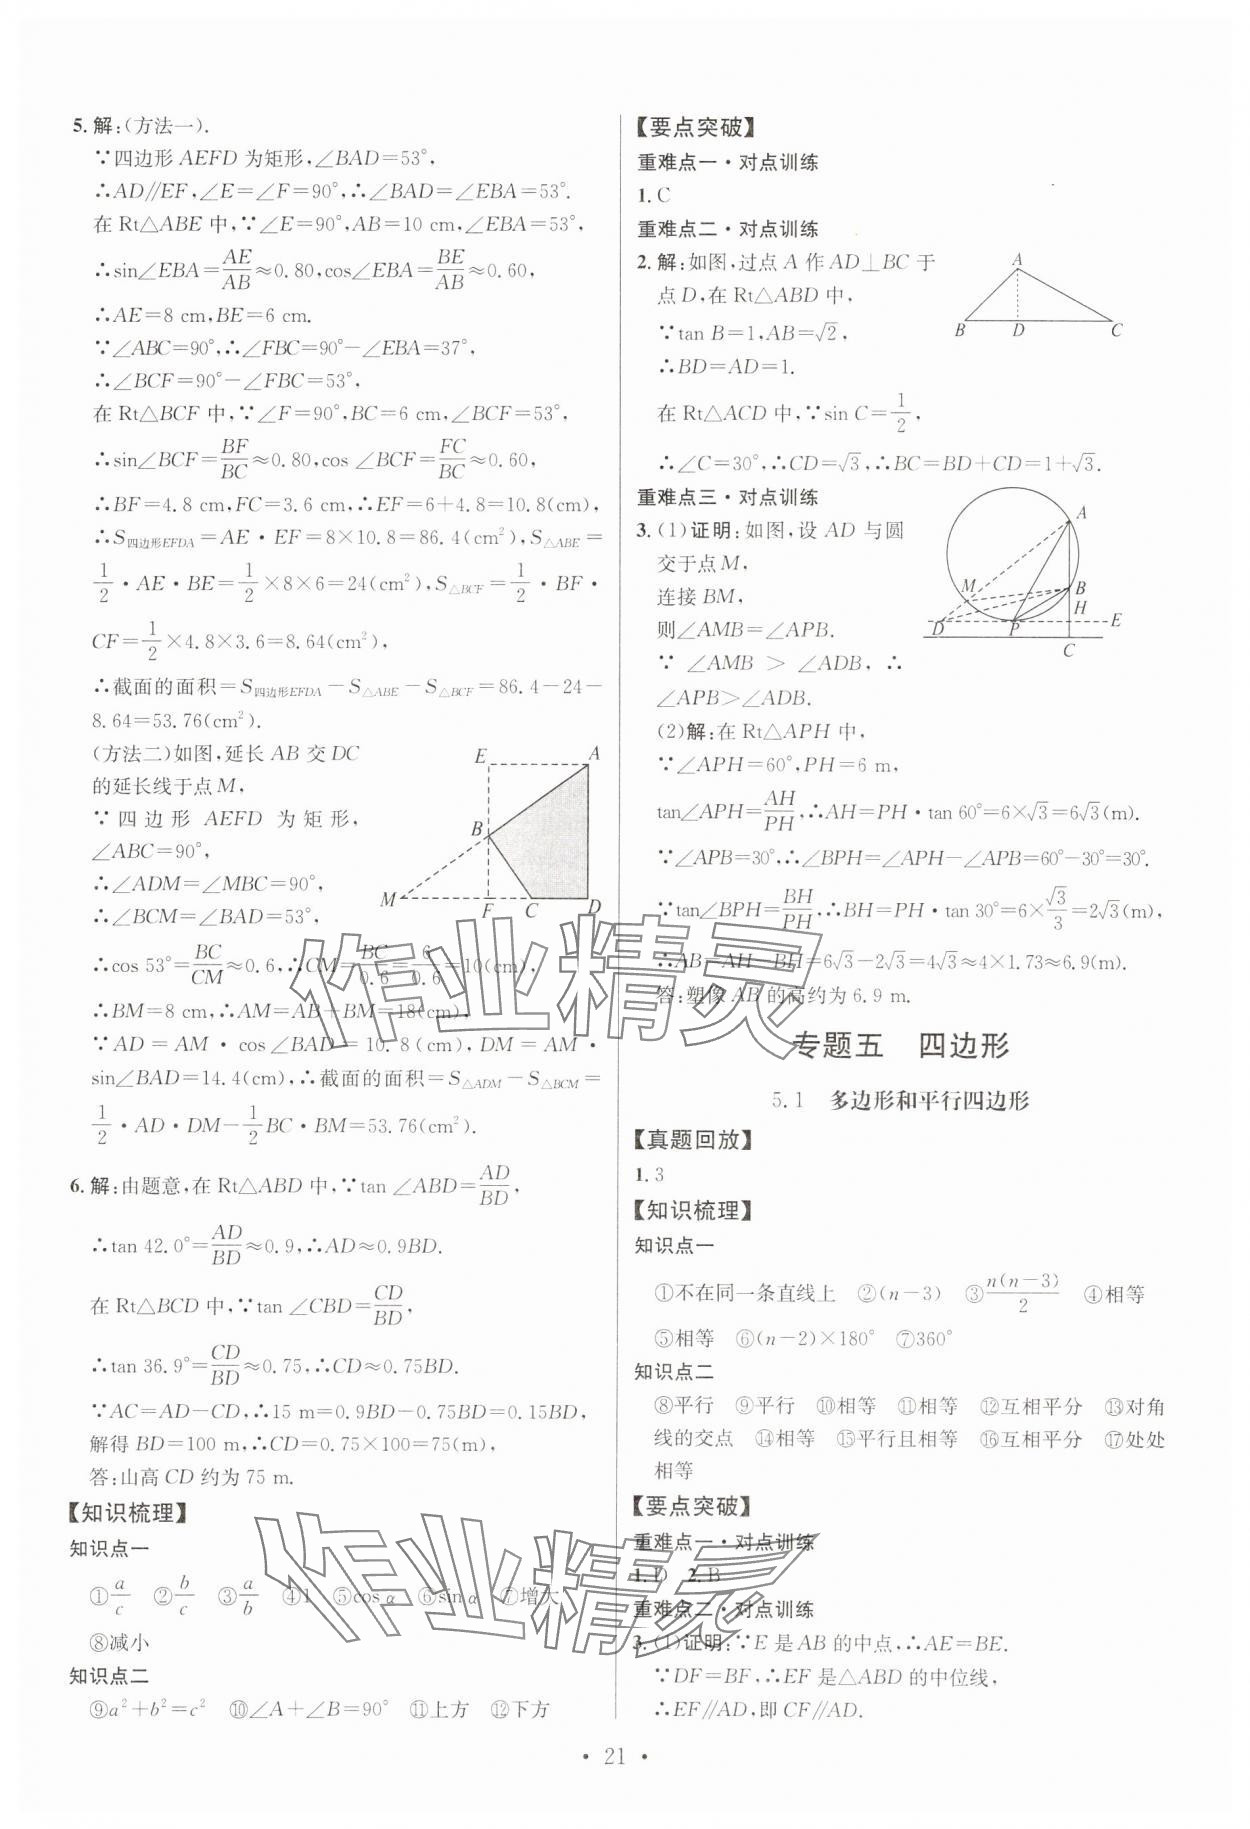 5. 解:(方法一).
∵四边形 AEFD 为矩形,∠BAD=53°,
∴AD∥EF,∠E=∠F=90°,∴∠BAD=∠EBA=53°.
在 Rt△ABE 中,∵∠E=90°,AB=10 cm,∠EBA=53°,
∴sin∠EBA=AE/AB≈0.80,cos∠EBA=BE/AB≈0.60,
∴AE=8 cm,BE=6 cm.
∵∠ABC=90°,∴∠FBC=90°-∠EBA=37°,
∴∠BCF=90°-∠FBC=53°,
在 Rt△BCF 中,∵∠F=90°,BC=6 cm,∠BCF=53°,
∴sin∠BCF=BF/BC≈0.80,cos ∠BCF=FC/BC≈0.60,
∴BF=4.8 cm,FC=3.6 cm,∴EF=6+4.8=10.8(cm),
∴S四边形EFDA=AE·EF=8×10.8=86.4(cm²),S△ABE=
1/2·AE·BE=1/2×8×6=24(cm²),S△BCF=1/2·BF·
CF=1/2×4.8×3.6=8.64(cm²),
∴截面的面积=S四边形EFDA-S△ABE-S△BCF=86.4-24-
8.64=53.76(cm²).
(方法二)如图,延长 AB 交 DC
的延长线于点 M,
∵四边形 AEFD 为矩形,
∠ABC=90°,
∴∠ADM=∠MBC=90°,
∴∠BCM=∠BAD=53°,
E A B M F C D
∴cos 53°=BC/CM≈0.6,∴CM=BC/0.6=6/0.6=10(cm),
∴BM=8 cm,∴AM=AB+BM=18(cm),
∵AD=AM·cos∠BAD=10.8(cm),DM=AM·
sin∠BAD=14.4(cm),∴截面的面积=S△ADM-S△BCM=
1/2·AD·DM-1/2BC·BM=53.76(cm²).
6. 解:由题意,在 Rt△ABD 中,∵tan ∠ABD=AD/BD,
∴tan 42.0°=AD/BD≈0.9,∴AD≈0.9BD.
在 Rt△BCD 中,∵tan ∠CBD=CD/BD,
∴tan 36.9°=CD/BD≈0.75,∴CD≈0.75BD.
∵AC=AD-CD,∴15 m=0.9BD-0.75BD=0.15BD,
解得 BD=100 m,∴CD=0.75×100=75(m),
答:山高 CD 约为 75 m.
【知识梳理】
知识点一
①a/c ②b/c ③a/b ④1 ⑤cos α ⑥sin α ⑦增大
⑧减小
知识点二
⑨a²+b²=c² ⑩∠A+∠B=90° ⑪上方 ⑫下方
【要点突破】
重难点一·对点训练
1. C
重难点二·对点训练
2. 解:如图,过点 A 作 AD⊥BC 于
点 D,在 Rt△ABD 中,
∵tan B=1,AB=√2,
∴BD=AD=1.
A B D C
在 Rt△ACD 中,∵sin C=1/2,
∴∠C=30°,∴CD=√3,∴BC=BD+CD=1+√3.
重难点三·对点训练
3. (1)证明:如图,设 AD 与圆
交于点 M,
连接 BM,
则∠AMB=∠APB.
∵∠AMB>∠ADB,∴
∠APB>∠ADB.
A M B H D P E C
(2)解:在 Rt△APH 中,
∵∠APH=60°,PH=6 m,
tan∠APH=AH/PH,∴AH=PH·tan 60°=6×√3=6√3(m).
∵∠APB=30°,∴∠BPH=∠APH-∠APB=60°-30°=30°.
∵tan∠BPH=BH/PH,∴BH=PH·tan 30°=6×√3/3=2√3(m),
∴AB=AH-BH=6√3-2√3=4√3≈4×1.73≈6.9(m).
答:塑像 AB 的高约为 6.9 m.
专题五 四边形
5.1 多边形和平行四边形
【真题回放】
1. 3
【知识梳理】
知识点一
①不在同一条直线上 ②(n-3) ③n(n-3)/2 ④相等
⑤相等 ⑥(n-2)×180° ⑦360°
知识点二
⑧平行 ⑨平行 ⑩相等 ⑪相等 ⑫互相平分 ⑬对角
线的交点 ⑭相等 ⑮平行且相等 ⑯互相平分 ⑰处处
相等
【要点突破】
重难点一·对点训练
1. D 2. B
重难点二·对点训练
3. (1)证明:∵E 是 AB 的中点,∴AE=BE.
∵DF=BF,∴EF 是△ABD 的中位线,
∴EF∥AD,即 CF∥AD.
作业精灵
作业精灵
·21·